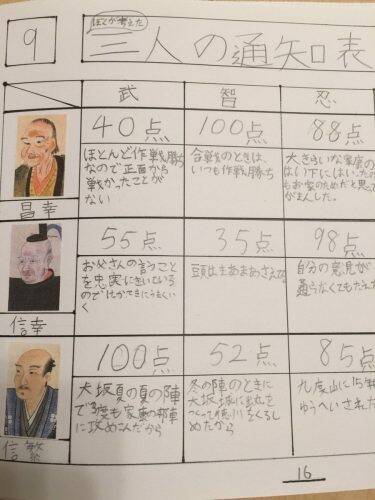 9
ぼくが考えた
三人の通知表
武
智
忍
40点
100点
88点
ほとんど作戦勝ち
なので正面から
戦かったことが
ない
合戦のときは、
いつも作戦勝ち
大きらいな家康の
はい下にはい
もお家のためだと思って
がまんした。
昌幸
55点
35点
98点
お父さんの言うこと
を忠実にきいている
ので
く
自分の意見が
通らなくてもたえ
信幸
100点
52点
85点
大坂夏の夏の陣
で3度も家康の本陣
に攻めこんだから
冬の陣のときに
大坂城に出丸を
つくって徳川をくるし
めたから
九度山に15年
ゆうへいされた
信繁
16